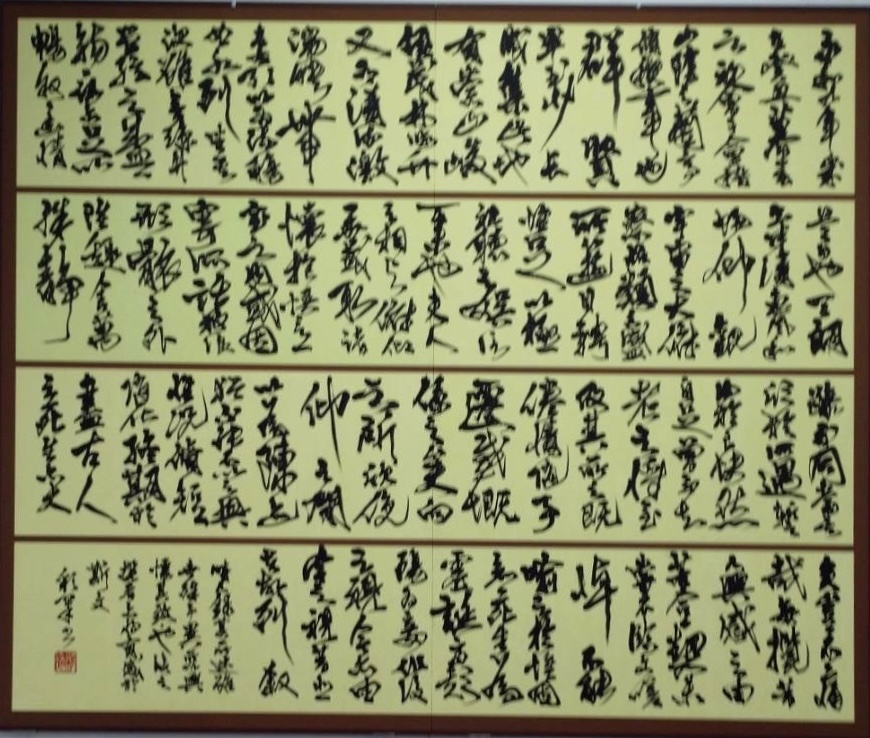 永和九年歲
在癸丑暮春
之初會于會稽
山陰之蘭亭
脩禊事也
群賢
畢至少長
咸集此地
有崇山峻
領茂林脩竹
又有清流激
湍暎帶左右
引以為流觴
曲水列坐其
次雖無絲竹
管弦之盛
一觴一詠亦足以
暢敘幽情
是日也天朗
氣清惠風和
暢仰觀
宇宙之大俯
察品類之盛
所以遊目騁
懷足以極
視聽之娛信
可樂也夫人
之相與俯仰
一世或取諸
懷抱悟言一
室之內或因
寄所託放浪
形骸之外
雖趣舍萬
殊靜
躁不同當其
欣於所遇暫
得於己快然
自足曾不知
老之將至
及其所之既
倦情隨事
遷感慨
係之矣向
之所欣俛
仰之間
以為陳迹
猶不能不以之興
懷況脩短
隨化終期於
盡古人
云死生亦大
矣豈不痛
哉每攬昔
人興感之由
若合一契未
嘗不臨文嗟
悼不能
喻之於懷固
知一死生為
虛誕齊彭
殤為妄作後
之視今亦由
今之視昔悲
夫故列敘
時人錄其所述雖
世殊事異所以興
懷其致一也後之
攬者亦將有感於
斯文